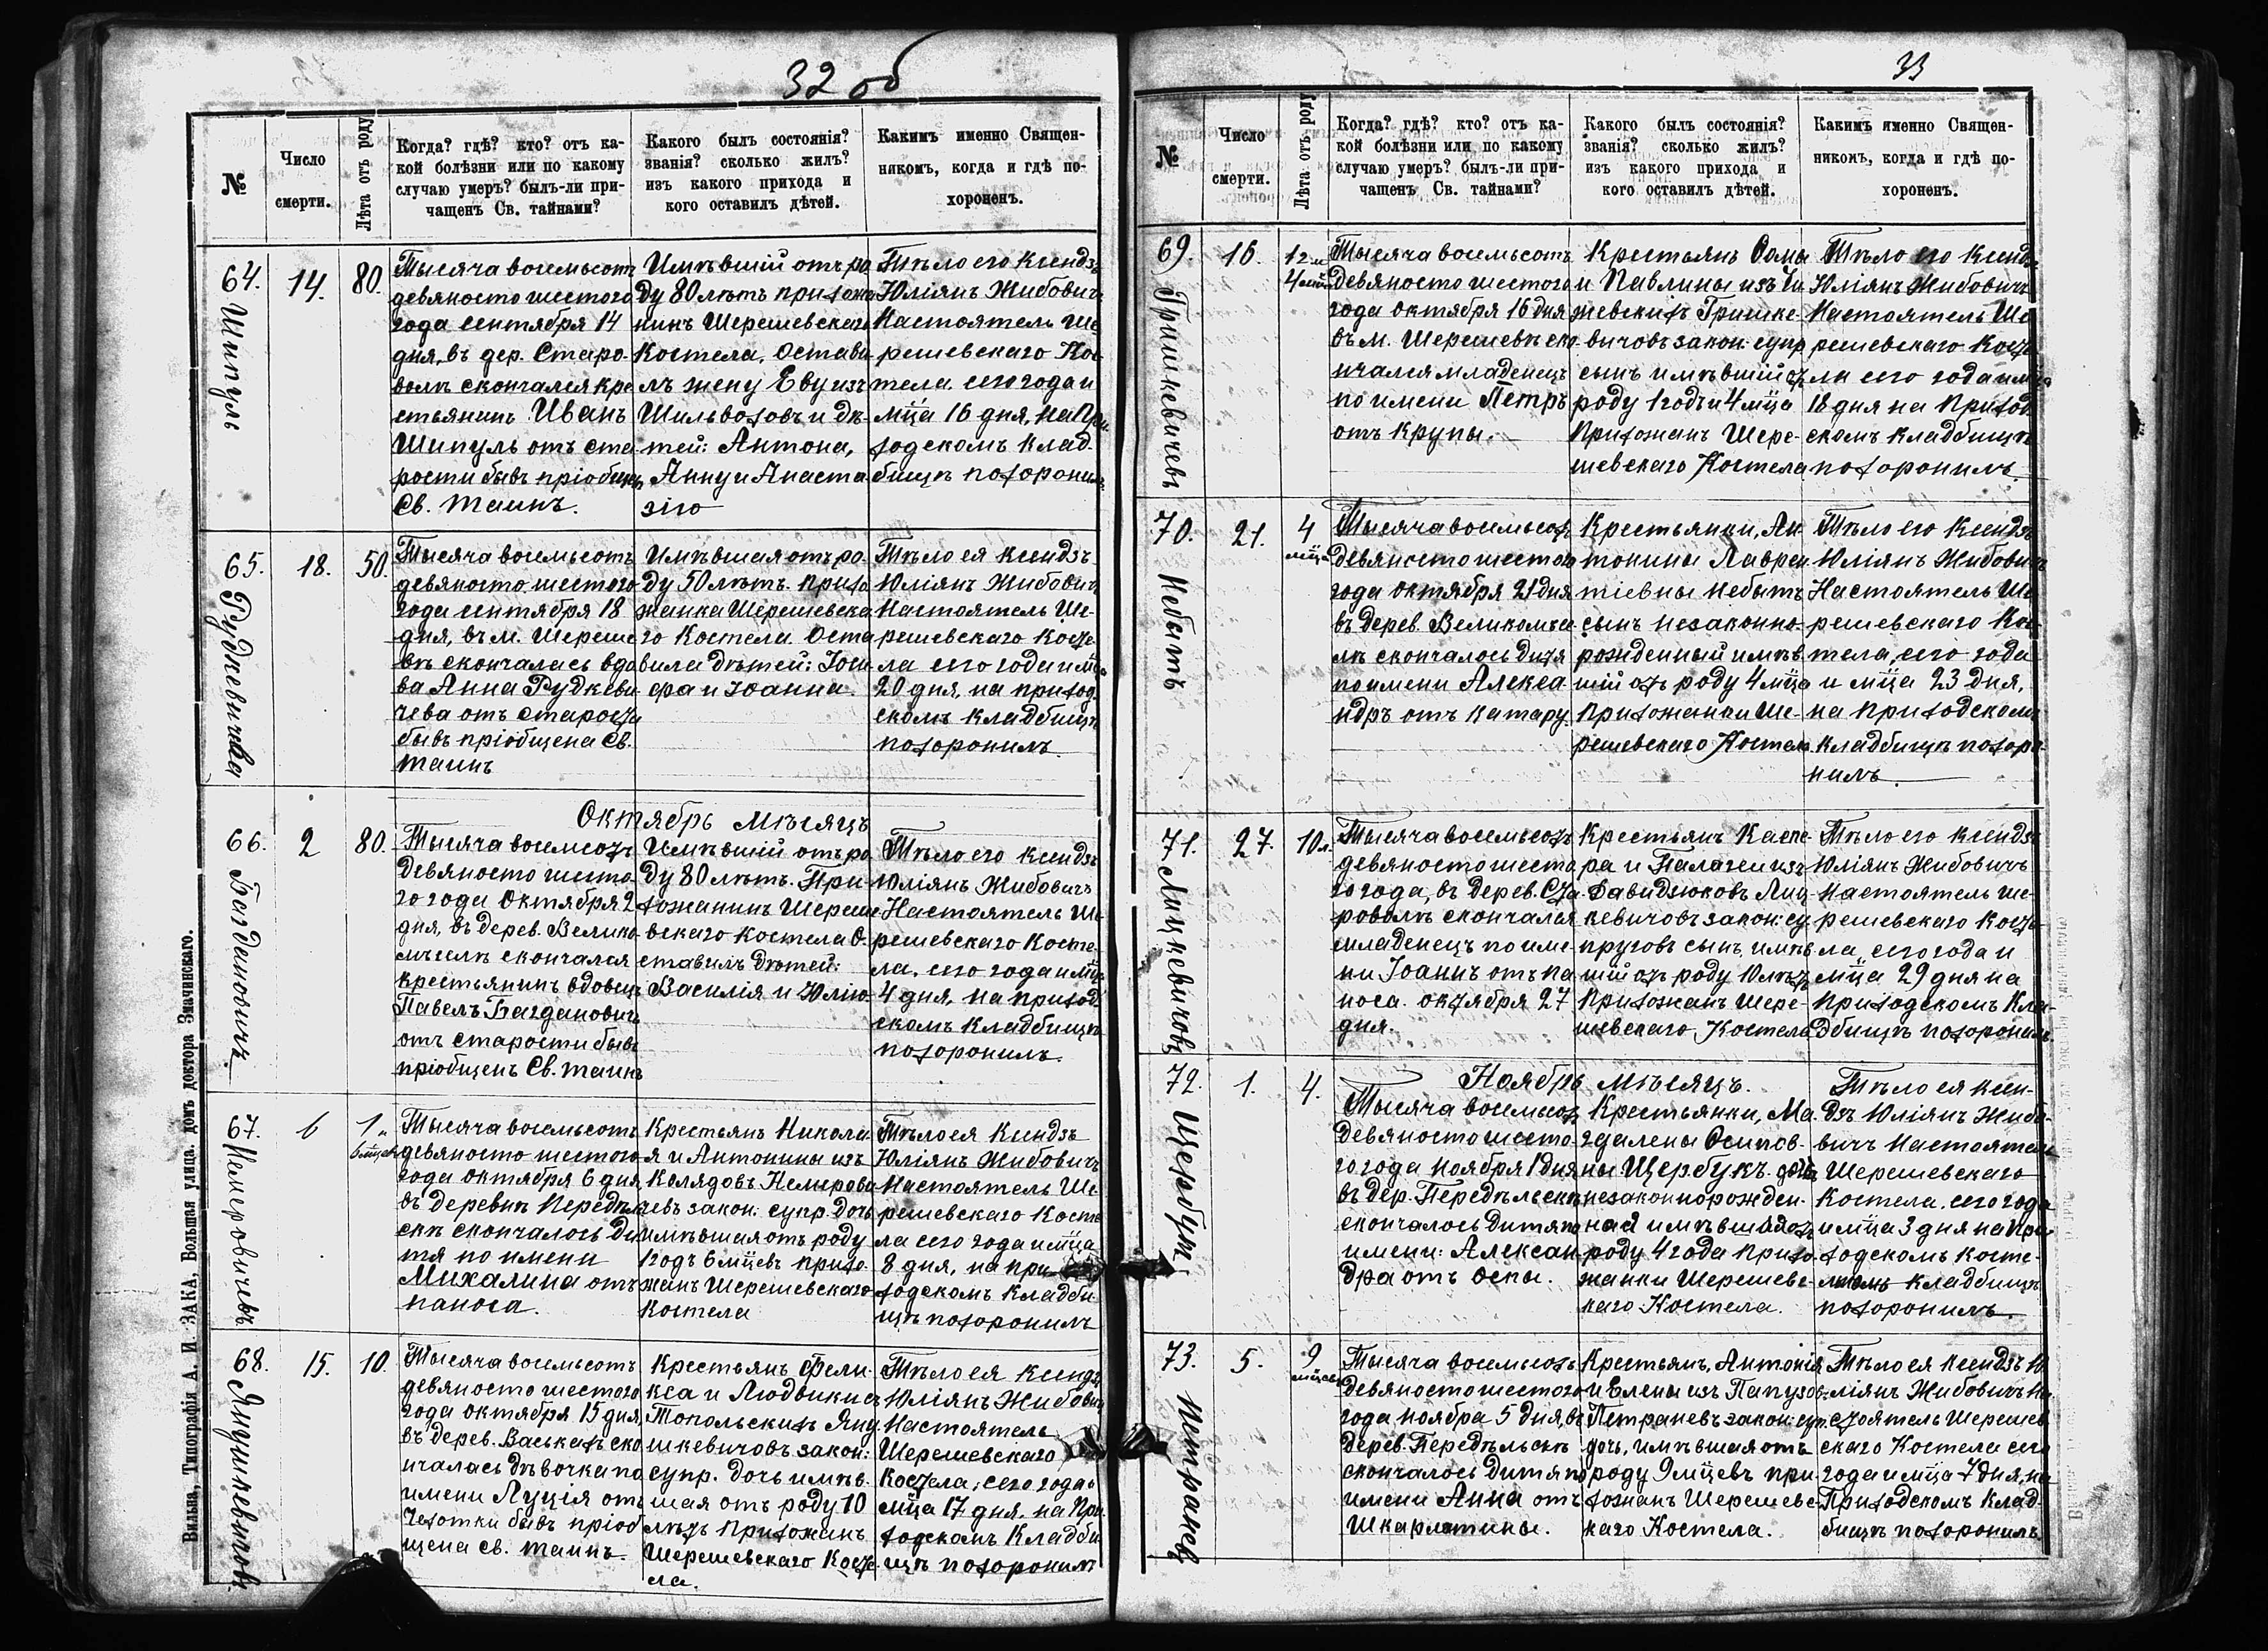 32 об
№
Число
смерти.
Лѣта отъ роду
Когда? гдѣ? кто? отъ ка-
кой болѣзни или по какому
случаю умеръ? былъ-ли при-
чащенъ Св. тайнами?
Какого былъ состоянія?
званія? сколько жилъ?
изъ какого прихода и
кого оставилъ дѣтей.
Какимъ именно Священ-
никомъ, когда и гдѣ по-
хороненъ.
64.
Шипуль
14.
80.
Тысяча восемьсотъ
девяносто шестого
года сентября 14
дня, въ дер. Старо-
волѣ скончался кре
стьянинъ Иванъ
Шипуль отъ ста
рости бывъ пріобщен
Св. Таинъ.
Имѣвшій отъ ро
ду 80 лѣтъ прихожа
нинъ Шерешевскаго
Костела. Остави
лъ жену Еву изъ
Шильвоховъ и дѣ-
тей: Антона,
Анну и Анаста
зію
Тѣло его ксендзъ
Юліянъ Жибовичъ
Настоятель Ше
решевскаго Кос-
тела сего года и
мца 16 дня, на При
ходскомъ клад-
бищѣ похоронилъ
65.
Рудкевичева
18.
50.
Тысяча восемьсотъ
девяносто шестого
года сентября 18
дня, въ м. Шереше
вѣ скончалась вдо
ва Анна Рудкеви
чева отъ старости
бывъ пріобщена Св.
Таинъ
Имѣвшая отъ ро-
ду 50 лѣтъ. Прихо
жанка Шерешевска
го Костела. Оста
вила дѣтей: Іоси
фа и Іоанна.
Тѣло ея ксендзъ
Юліянъ Жибовичъ
Настоятель Ше-
решевскаго Косте
ла сего года и мца
20 дня, на приход
скомъ кладбищѣ
похоронилъ
Октябрь мѣсяцъ
66.
Багдановичъ.
2
80.
Тысяча восемсотъ
девяносто шесто-
го года Октября 2
дня, въ дерев. Велико-
мъ селѣ скончался
крестьянинъ вдовецъ
Павелъ Багдановичъ
отъ старости бывъ
пріобщенъ Св. Таинъ
Имѣвшій отъ ро
ду 80 лѣтъ. При-
хожанинъ Шереше
вскаго Костела О-
ставилъ дѣтей:
Василія и Юлію.
Тѣло его ксендзъ
Юліянъ Жибовичъ
Настоятель Ше
решевскаго Косте-
ла, сего года и мца
4 дня, на приход
скомъ кладбищѣ
похоронилъ.
67.
Немеровичевъ
6
1 и
6 мцев
Тысяча восемьсотъ
девяносто шестого
года октября 6 дня,
въ деревнѣ Передѣль
скѣ скончалось ди
тя по имени
Михалина отъ
паноса.
Крестьянъ Никола
я и Антонины изъ
Колядовъ Немирови
чевъ закон: супр. дочь
имѣвшая отъ роду
1 годъ 6 мцевъ прихо-
жанъ Шерешевскаго
Костела
Тѣло ея Ксендзъ
Юліянъ Жибовичъ
Настоятель Ше-
решевскаго Косте
ла сего года и мца
8 дня, на при
ходскомъ кладби
щѣ похоронилъ
68.
Янушкевичовъ
15.
10.
Тысяча восемьсотъ
девяносто шестого
года октября 15 дня,
въ дерев. Васькахъ ско
нчалась дѣвочка по
имени Луція отъ
Чехотки бывъ пріоб
щена Св. Таинъ.
Крестьянъ Фели-
кса и Людвики съ
Топольскихъ Яну
шкевичовъ закон:
супр. дочь имѣв-
шая отъ роду 10
лѣтъ Прихожанъ
Шерешевскаго Косте
ла.
Тѣло ея ксендзъ
Юліянъ Жибовичъ
Настоятель
Шерешевскаго
Костела, сего года
мца 17 дня, на При
ходскомъ Кладби
щѣ похоронилъ
Вильна, Типографія А. И. ЗАКА, Большая улица. домъ доктора Змачинскаго.
33
№
Число
смерти.
Лѣта отъ роду
Когда? гдѣ? кто? отъ ка-
кой болѣзни или по какому
случаю умеръ? былъ-ли при-
чащенъ Св. тайнами?
Какого былъ состоянія?
званія? сколько жилъ?
изъ какого прихода и
кого оставилъ дѣтей.
Какимъ именно Священ-
никомъ, когда и гдѣ по-
хороненъ.
69.
Гришкевичевъ
16.
4 мца
Тысяча восемьсотъ
девяносто шестого
года октября 16 дня
въ м. Шерешевѣ ско
нчался младенецъ
по имени Петръ
отъ Крупы.
Крестьянъ Ѳомы
и Павлины изъ Чи
жевскихъ Гришке-
вичовъ закон: супр
сынъ имѣвшій отъ
роду 1 годъ и 4 мца
Прихожанъ Шере-
шевскаго Костела
Тѣло его Ксендзъ
Юліянъ Жибовичъ
Настоятель Ше
решевскаго Косте
ла сего года и мца
18 дня на Приход
скомъ кладбищѣ
похоронилъ
70.
Небытъ
21.
4
мца
Тысяча восемьсотъ
девяносто шестого
года октября 21 дня
въ дерев. Великомъ се
лѣ скончалось дитя
по имени Алекса
ндръ отъ катару
Крестьянки, Ан
тонины Лаврен
тіевны Небытъ
сынъ незаконно-
рожденный имѣв
шій отъ роду 4 мца
Прихожанки Ше-
решевскаго Костела
Тѣло его Ксендзъ
Юліянъ Жибовичъ
Настоятель Ше
решевскаго Кос-
тела, сего года
и мца 23 дня,
на Приходскомъ
кладбищѣ похоро-
нилъ
71.
Лицкевичовъ
27.
10 л.
Тысяча восемьсотъ
девяносто шесто
го года, въ дерев. Ста-
роволѣ скончался
младенецъ по име-
ни Іоаннъ отъ па
носа. октября 27
дня.
Крестьянъ Каспе-
ра и Палагеи изъ
Давидзюковъ Лиц-
кевичовъ закон: су-
пруговъ сынъ, имѣв
шій отъ роду 10 лѣтъ
Прихожанъ Шере-
шевскаго Костела
Тѣло его ксендзъ
Юліянъ Жибовичъ
Настоятель Ше-
решевскаго Косте-
ла, сего года и
мца 29 дня на
Приходскомъ Кла-
дбищѣ похоронилъ.
Ноябрь мѣсяцъ.
72.
Щербукъ
1.
4.
Тысяча восемьсотъ
девяносто шесто-
го года Ноября 1 дня
въ дер. Передѣльскѣ
скончалось дитя по
имени: Алексан
дра отъ Оспы.
Крестьянки, Ма-
гдалены Осипов-
ны Щербукъ. дочь
незаконнорожден-
ная имѣвшая отъ
роду 4 года Прихо-
жанки Шерешевс-
каго Костела.
Тѣло ея ксен-
дзъ Юліянъ Жибо-
вичъ Настоятель
Шерешевскаго
Костела, сего года
и мца 3 дня на При
ходскомъ косте-
кладбищѣ
похоронилъ
73.
Петраневъ
5.
9
мцевъ
Тысяча восемьсотъ
девяносто шестого
года Ноября 5 дня, въ
дерев. Передѣльскѣ
скончалось дитя по
имени Анна отъ
Шкарлятины.
Крестьянъ, Антонія
и Елены изъ Папузов-
Петраневъ закон: суп.
дочь, имѣвшая отъ
роду 9 мцевъ при-
хожанъ Шерешевс-
каго Костела.
Тѣло ея ксендзъ Ю
ліянъ Жибовичъ На-
стоятель Шерешев
скаго Костела сего
года и мца 7 дня, на
Приходскомъ Клад-
бищѣ похоронилъ